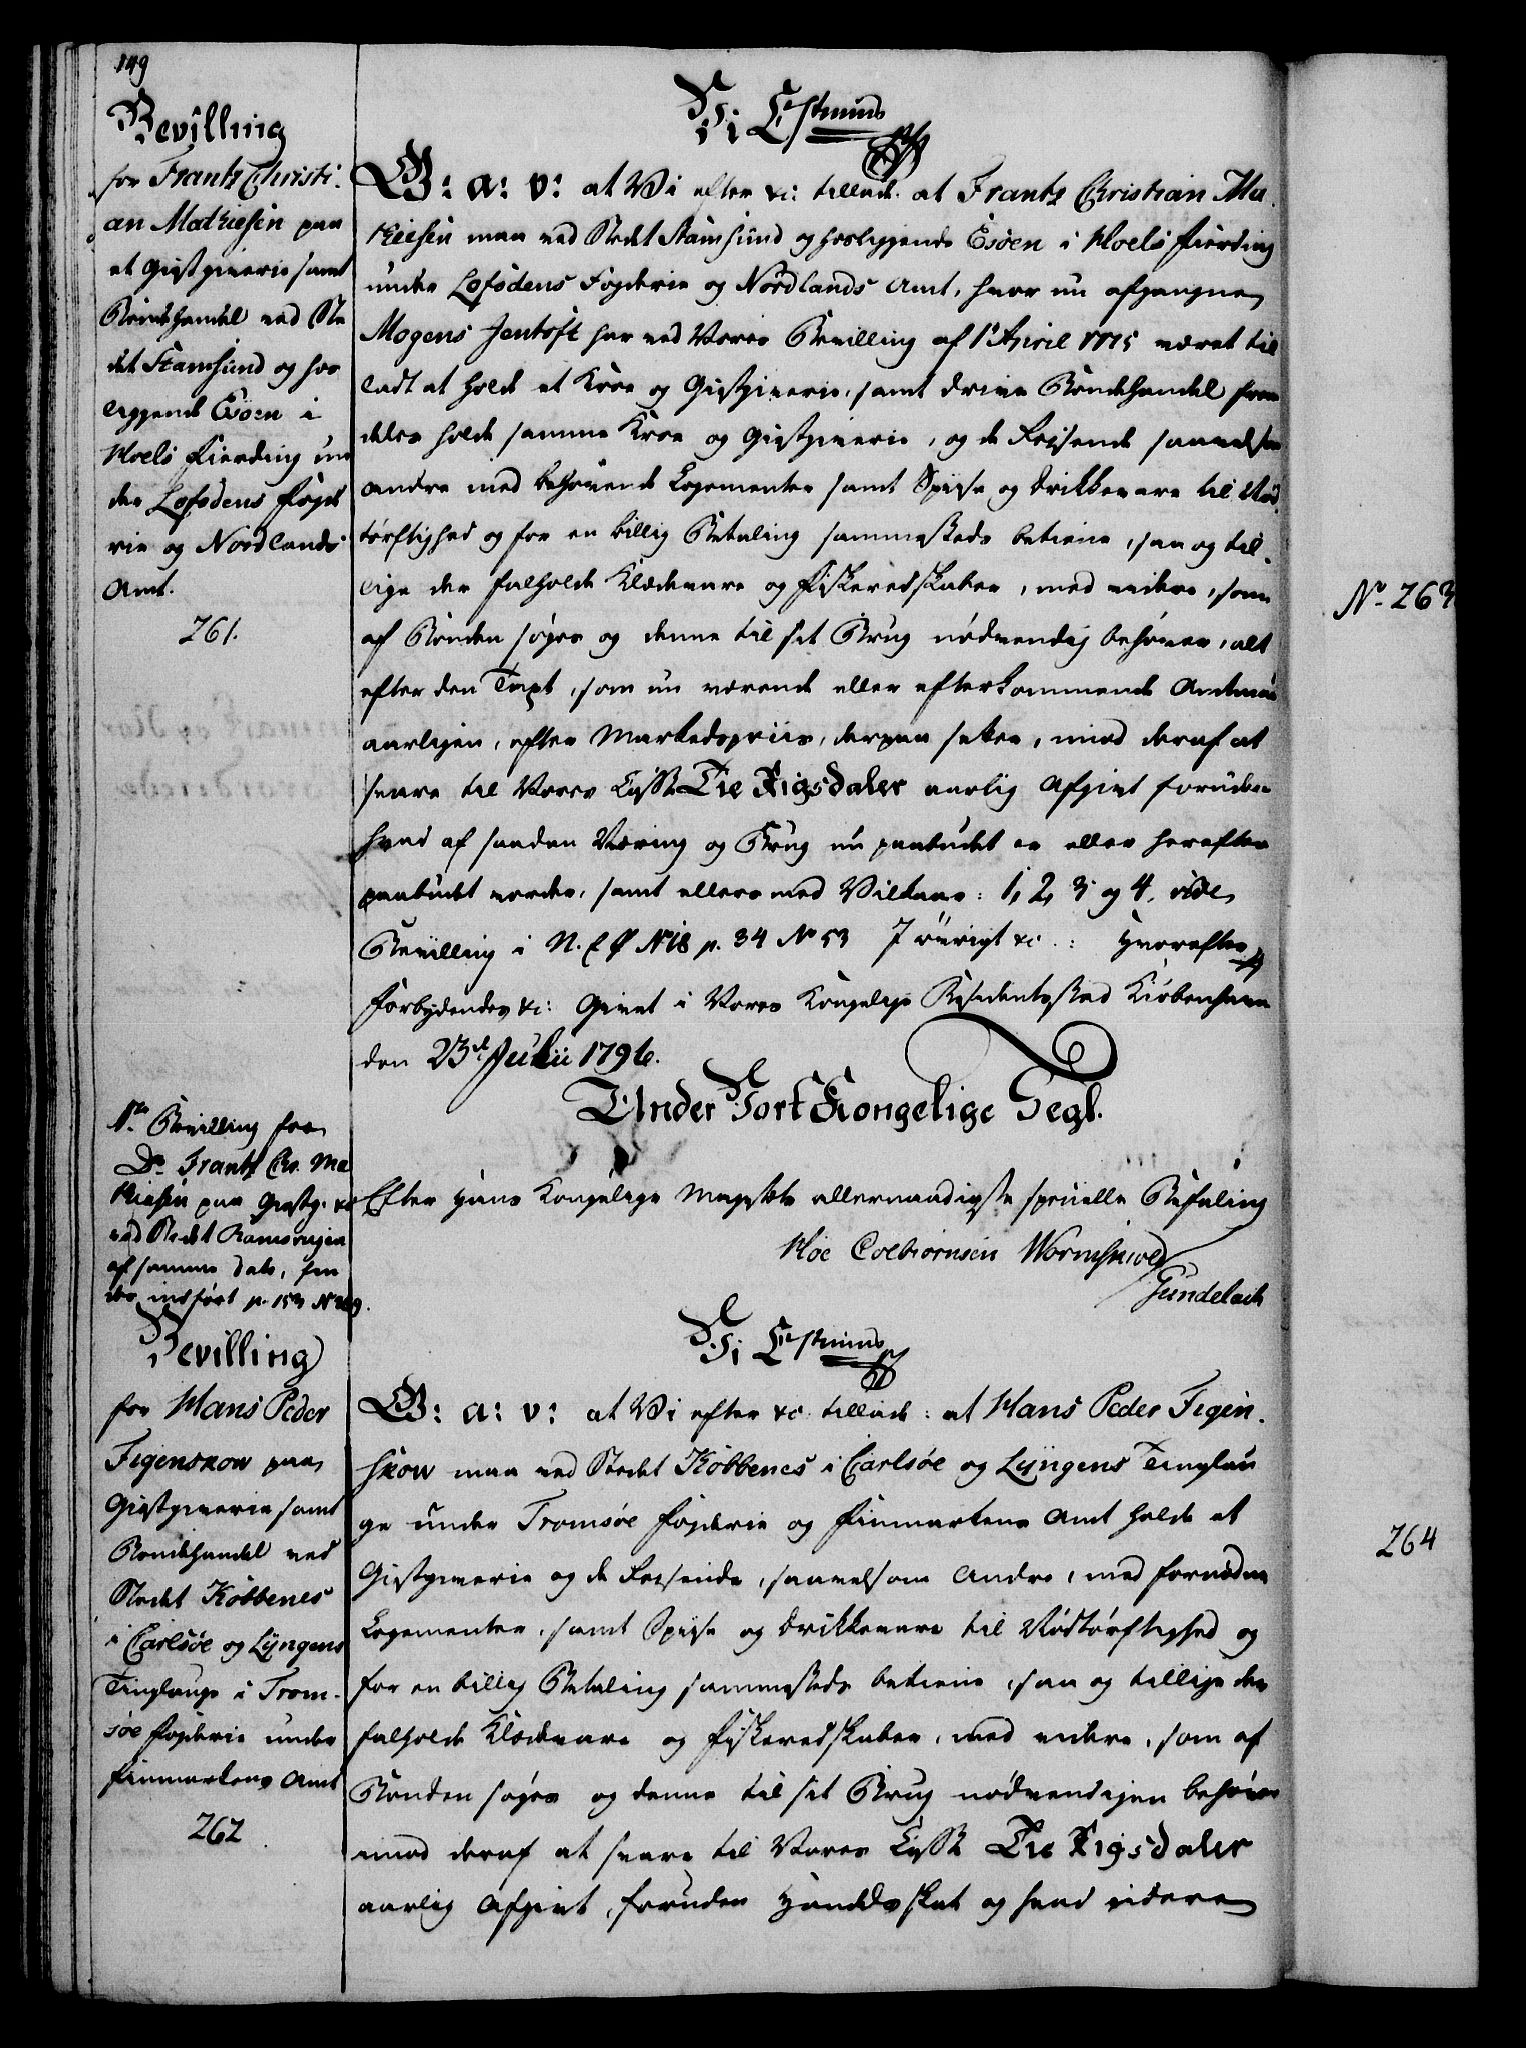 149
Bevilling
for Frantz Christi-
an Mathiesen paa
et Giestgiverie samt
Bondehandel ved Ste
det Stamsund og hos
liggende Esøen i
Hoels fierding un
der Lofodens fogde
rie og Nordlands
Amt.
261.
Vi C 7mus
G: a: v: at Vi efter &c: tillade: at Frantz Christian Ma-
thiesen maa ved Stedet Stamsund og hosliggende Esøen i Hoels fierding
under Lofodens Fogderie og Nordlands Amt, hvor nu afgangne
Mogens Jentoft har ved Vores Bevilling af 1 April 1775 været til
ladt at holde et Kroe og Giestgiverie, samt drive Bondehandel frem
deles holde samme Kroe og Giestgiverie, og de Reisende saavelsom
andre med behøvende Logementer samt Spiise og Drikkevare til Nød
tørftighed og for en billig Betaling sammesteds betiene, saa og til-
lige der falholde Klædevare og Fiskeredskaber, med videre, som
af Bonden søges og denne til sit Brug nødvendig behøver, alt
efter den Taxt, som nu værende eller efterkommende Amtmand
aarligen, efter Markedspriis, derpaa setter, imod deraf at
svare til Vores Casse Tie Rigsdaler aarlig Afgivt foruden
hvad af saadan Næring og Brug nu paabudet er eller herefter
paabudet vorder, samt ellers med Vilkaar: 1, 2, 3 og 4. vide
Bevilling i N. P. No 18 p. 34 No 53 I øvrigt &c.: Hvorefter
Forbydendes &c: Givet i Vores Kongelige Residentzstad Kiøbenhavn
den 23d Julii 1796.
Under Vort Kongelige Segl.
Efter Hans Kongelige Majestets allernaadigste specielle Befaling
Hoe Colbiørnsen Wormskiold
Gundelach
No Bevilling for
Do Frantz Chr. Ma
thiesen paa Giestg. &c
ved Stedet Ramsvigen
af samme Dato, fin
des indført p. 153 No 269.
Bevilling
for Hans Peder
Figenskow paa
Giestgiverie samt
Bondehandel ved
Stedet Kobbenes
i Carlsøe og Lyngens
Tinglauge i Trom-
søe fogderie under
Finmarkens Amt
262
Vi C 7mus
G: a: v: at Vi efter &c. tillade: at Hans Peder Figen-
skow maa ved Stedet Kobbenes i Carlsøe og Lyngens Tinglau
ge under Tromsøe fogderie og Finmarkens Amt holde et
Giestgiverie og de Reisende, saavelsom Andre, med fornødne
Logementer, samt Spiise og Drikkevare til Nødtørftighed og
for en billig Betaling sammesteds betiene, saa og tillige der
falholde Klædevare og Fiskeredskaber, med videre, som af
Bonden søges og denne til sit Brug nødvendigen behøver
imod deraf at svare til Vores Casse Tie Rigsdaler
aarlig Afgivt, foruden Handelsskat og hvad videre
No. 263
264